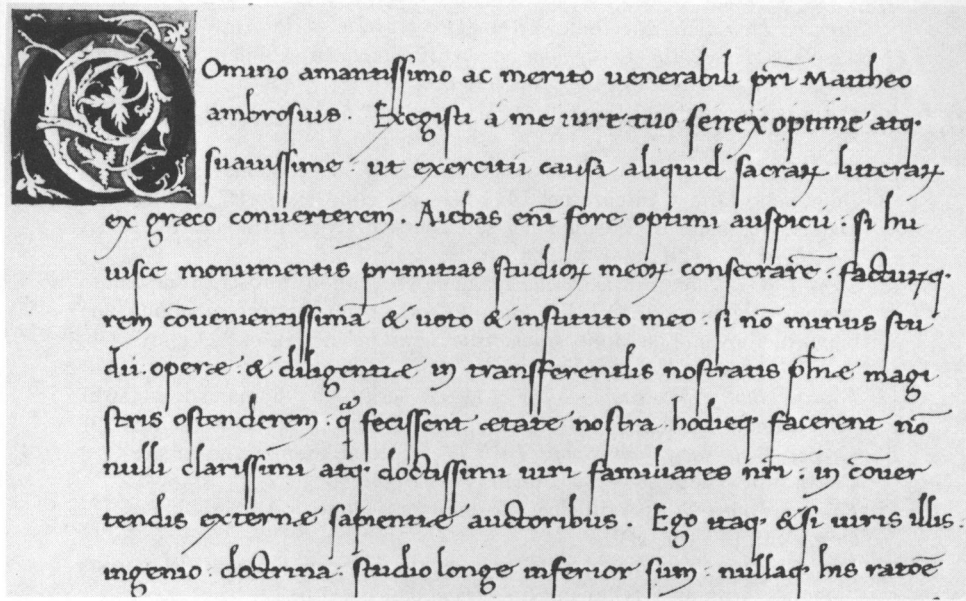 Domino amantissimo ac merito uenerabili pr̄i Mattheo
ambrosius. Exegisti á me iure tuo senex optime atq·
suauissime: ut exercitii causa aliquid sacraꝝ litteraꝝ
ex græco conuerterem. Aiebas eni͂ fore optimi auspicii: si hu
iusce monumentis primitias studioꝝ meoꝝ consecrare͂: facturūq·
rem co͂uenientissima͂ & uoto & instituto meo: si no͂ minus stu
dii. operæ & diligentiæ in transferendis nostratis phi͂æ magi
stris ostenderem: qͣ fecissent ætate nostra hodieq· facerent no͂
nulli clarissimi atq· doctissimi uiri familiares nr̄i: in co͂uer
tendis externæ sapientiæ auctoribus. Ego itaq· & si uiris illis.
ingenio. doctrina. studio longe inferior sum: nullaq· his ratio͂e